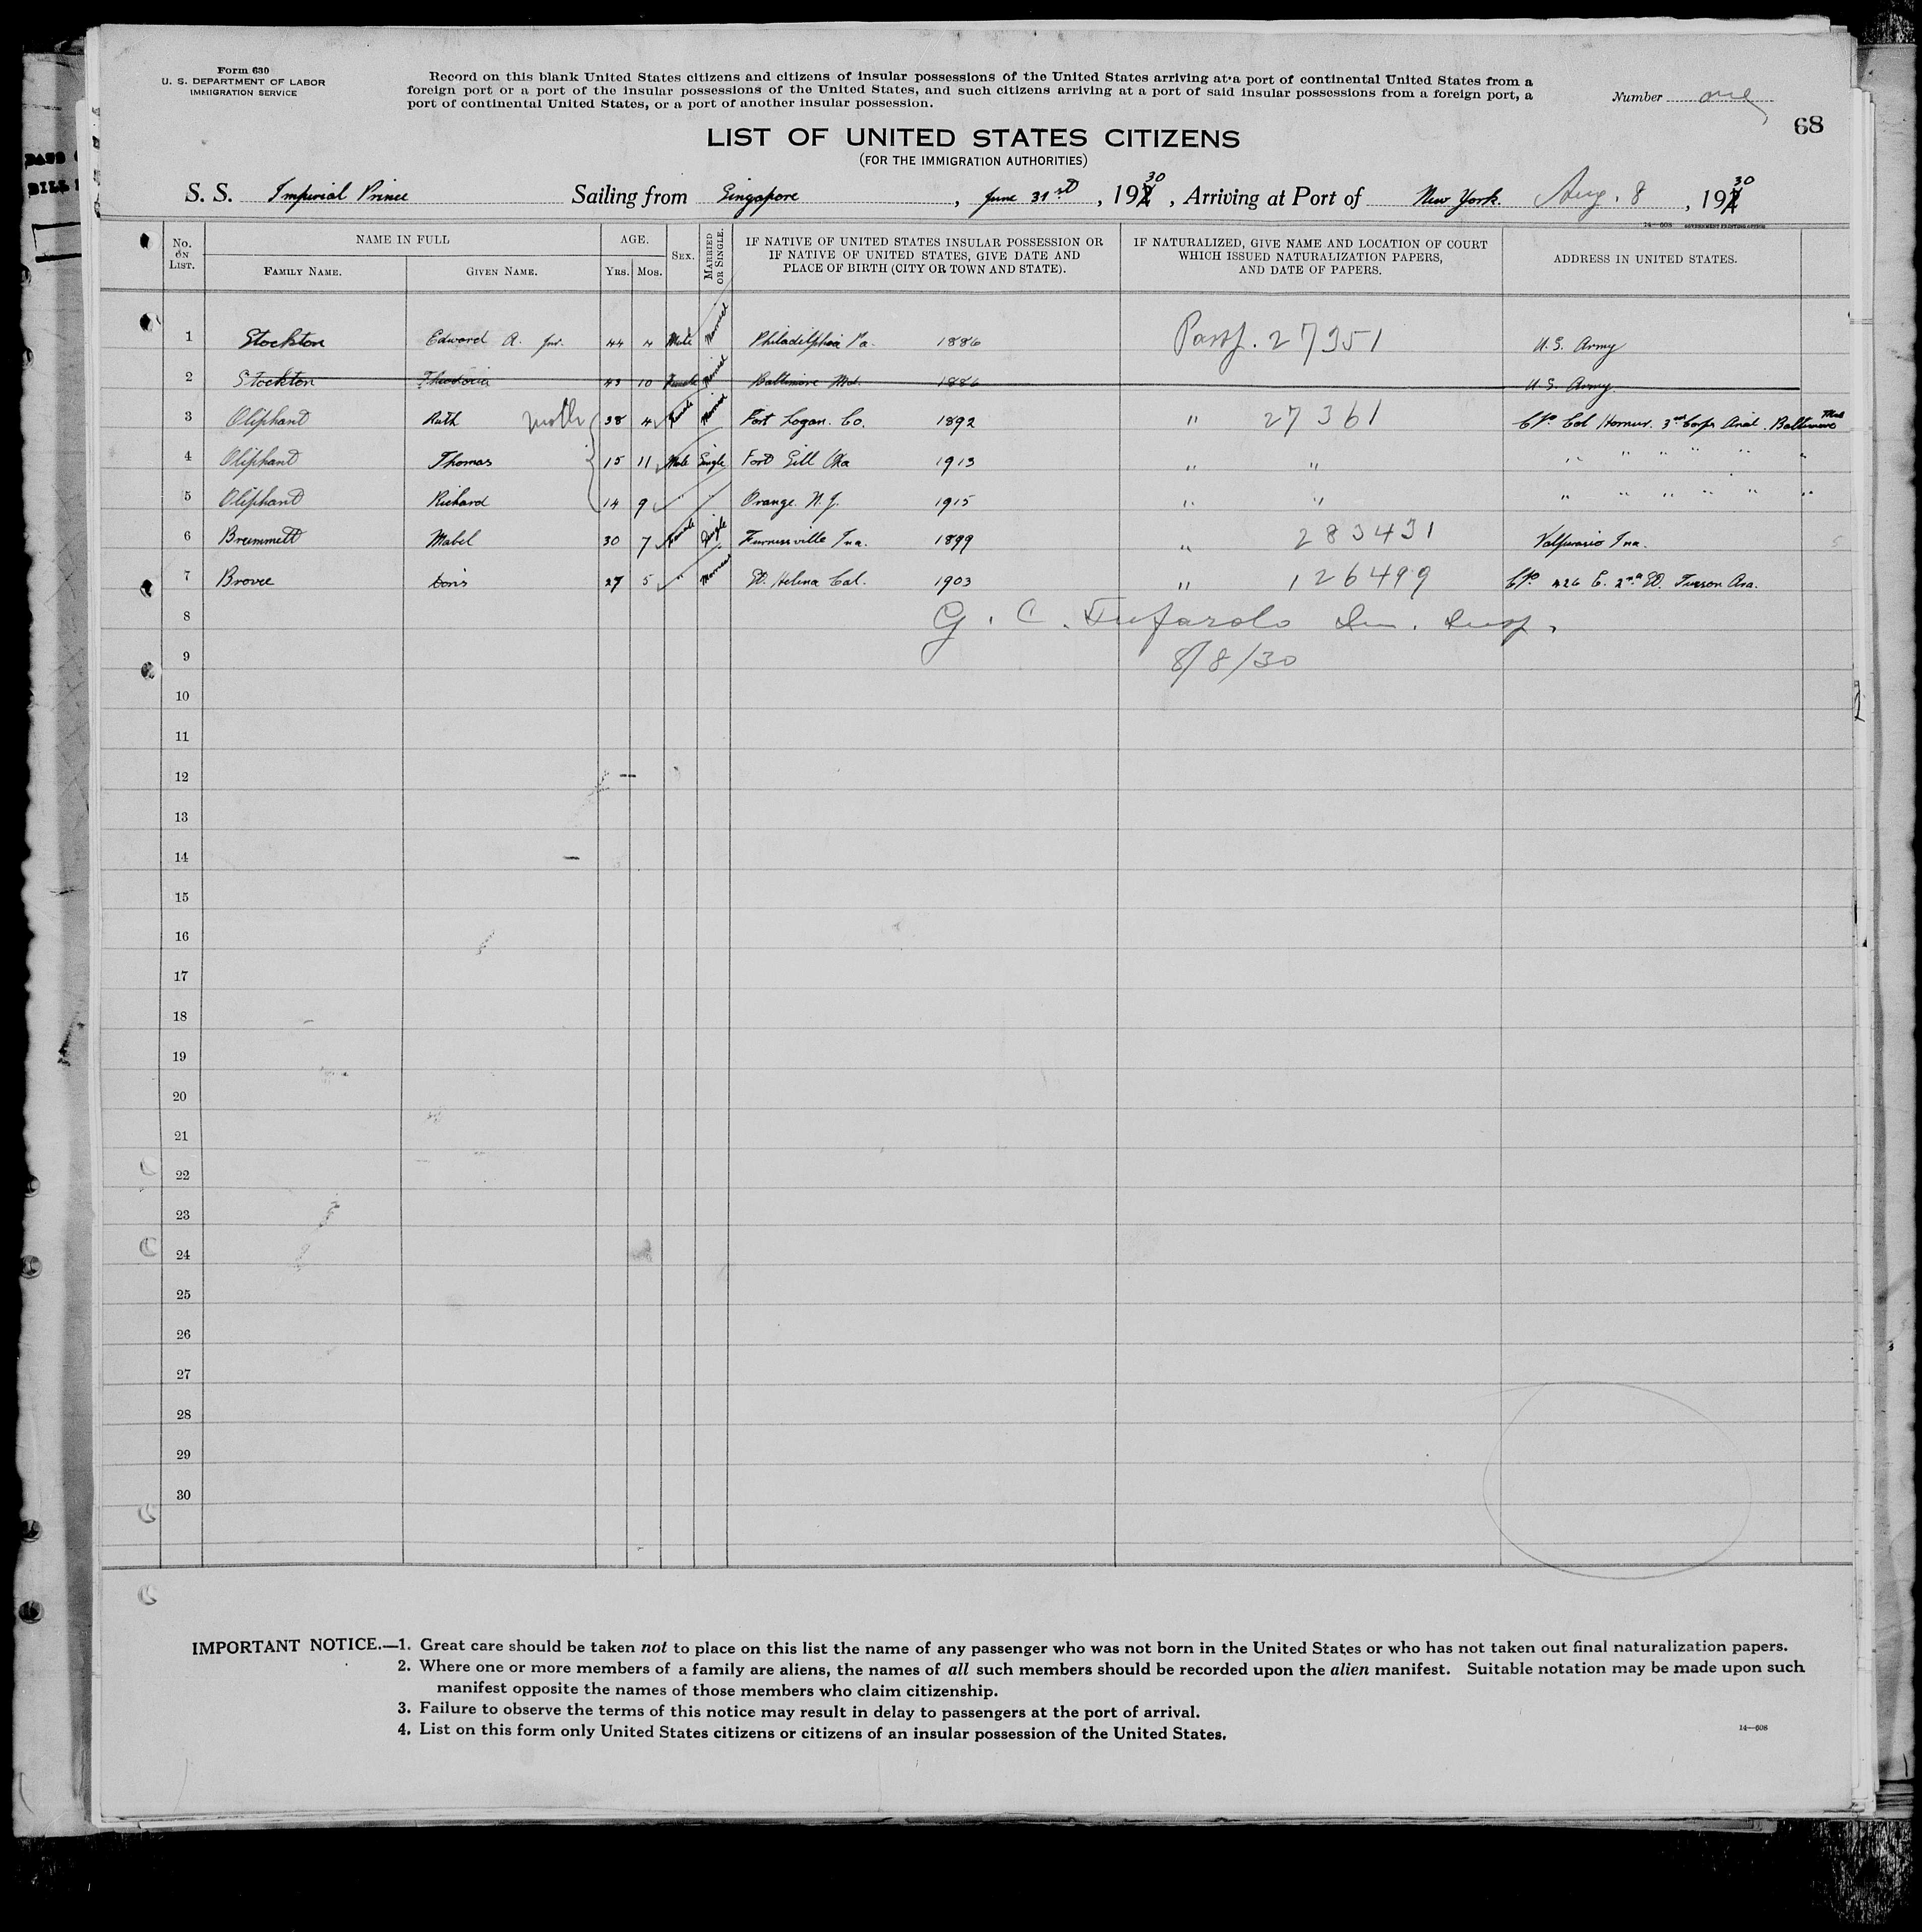 Form 630
U. S. DEPARTMENT OF LABOR
IMMIGRATION SERVICE
Record on this blank United States citizens and citizens of insular possessions of the United States arriving at a port of continental United States from a
foreign port or a port of the insular possessions of the United States, and such citizens arriving at a port of said insular possessions from a foreign port, a
port of continental United States, or a port of another insular possession.
Number one
68
LIST OF UNITED STATES CITIZENS
(FOR THE IMMIGRATION AUTHORITIES)
S. S. Imperial Prince Sailing from Singapore, June 31st, 1930, Arriving at Port of New York. Aug. 8, 1930
14—608 GOVERNMENT PRINTING OFFICE
No. on List. NAME IN FULL FAMILY NAME. GIVEN NAME. AGE. Yrs. Mos. SEX. MARRIED OR SINGLE. IF NATIVE OF UNITED STATES INSULAR POSSESSION OR IF NATIVE OF UNITED STATES, GIVE DATE AND PLACE OF BIRTH (CITY OR TOWN AND STATE). IF NATURALIZED, GIVE NAME AND LOCATION OF COURT WHICH ISSUED NATURALIZATION PAPERS, AND DATE OF PAPERS. ADDRESS IN UNITED STATES.
1 Stockton Edward A. Jnr. 44 4 Male Married Philadelphia Pa. 1886 27351 U.S. Army
2 Stockton Theodosia 43 10 Female Married Baltimore Md. 1886 U.S. Army
3 Oliphant Ruth 38 4 Female Married Fort Logan. Co. 1892 " 27361 C/o Col Homer. 3rd Corps Baltimore Md
4 Oliphant Thomas 15 11 Male Single Fort Sill Oka 1913 " " " " " " " "
5 Oliphant Richard 14 9 " " Orange. N.J. 1915 " " " " " " " "
6 Brummett Mabel 30 7 Female Single Furnessville Ina. 1899 " 283431 Valparaiso Ina.
7 Doris 27 5 " Married St. Helena Cal. 1903 " 126499 C/o 426 E. 2nd St. Tucson Ara.
8 G. C. Tufarolo Im. Insp.
9 8/8/30
10
11
12
13
14
15
16
17
18
19
20
21
22
23
24
25
26
27
28
29
30
IMPORTANT NOTICE.—1. Great care should be taken not to place on this list the name of any passenger who was not born in the United States or who has not taken out final naturalization papers.
2. Where one or more members of a family are aliens, the names of all such members should be recorded upon the alien manifest. Suitable notation may be made upon such
manifest opposite the names of those members who claim citizenship.
3. Failure to observe the terms of this notice may result in delay to passengers at the port of arrival.
4. List on this form only United States citizens or citizens of an insular possession of the United States.
14—608